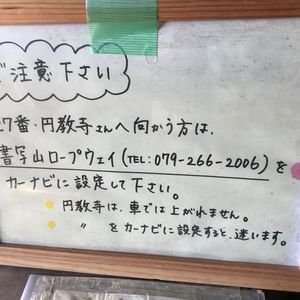 ご注意下さい
27番・円教寺さんへ向かう方は、
書写山ロープウェイ(TEL:079-266-2006)を
カーナビに設定して下さい。
円教寺は、車では上がれません。
〃 をカーナビに設定すると、迷います。